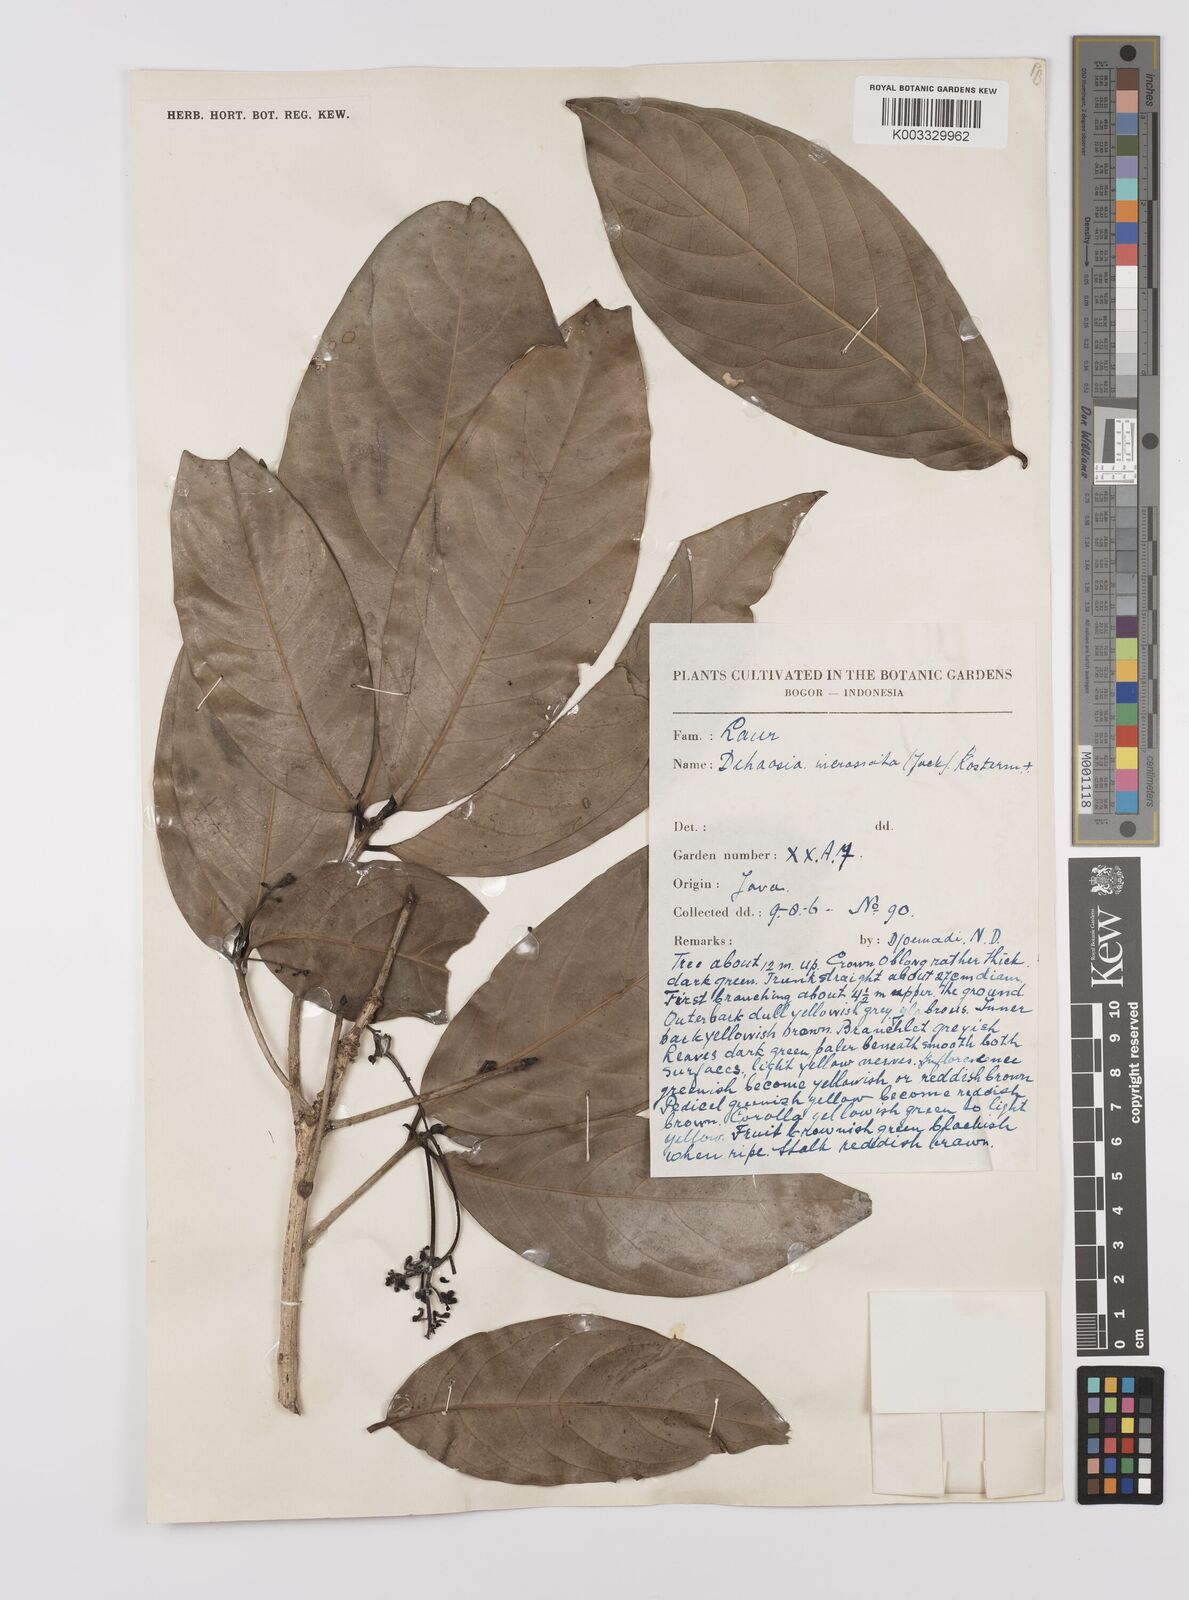 HERB. HORT. BOT. REG. KEW.
ROYAL BOTANIC GARDENS KEW
K003329962
PLANTS CULTIVATED IN THE BOTANIC GARDENS
BOGOR — INDONESIA
Fam. : Laur
Name: Dehaasia incrassata (Jack). Kosterm
Det. : dd.
Garden number: XX.A.7.
Origin : Java.
Collected dd. : 9-8-6- No 90.
Remarks : by: Djoemadi. N.D.
Tree about 12 m. up. Crown Oblong rather thick
dark green. Trunk straight about 27 cm diam.
First branching about 4½ m upper, the ground
Outer bark dull yellowish grey glabrous. Inner
bark yellowish brown. Branchlet greyish
Leaves dark green, paler beneath smooth both
surfaces, light yellow nerves. Inflorescence
greenish become yellowish or reddish brown
Pedicel greenish yellow become reddish
brown. Corolla yellowish green to light
yellow. Fruit brownish green blackish
when ripe. Stalk reddish brown.
inches
Don Williams
M001118
Kew
Royal Botanic Gardens
0 1 2 3 4 5 6 7 8 9 10
cm